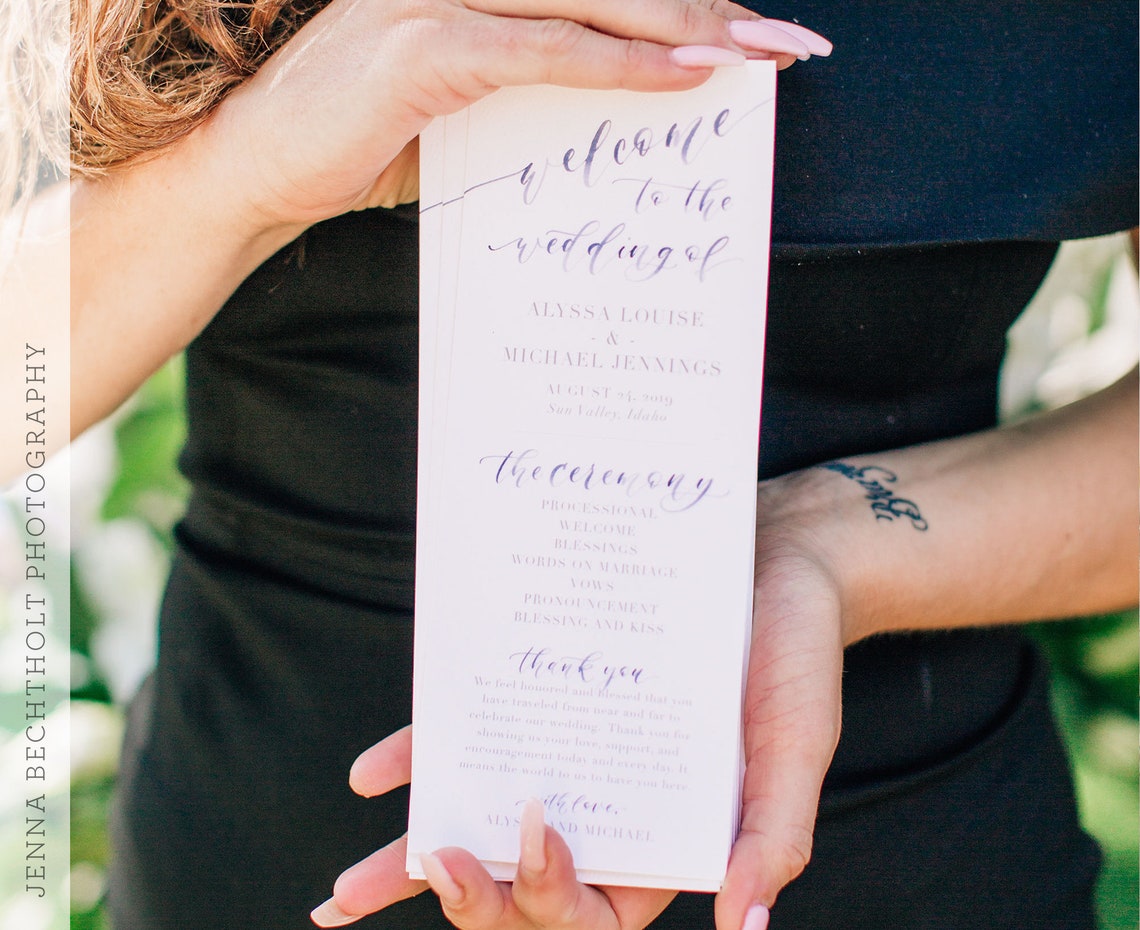 welcome
to the
wedding of
ALYSSA LOUISE
- & -
MICHAEL JENNINGS
AUGUST 24, 2019
Sun Valley, Idaho
the ceremony
PROCESSIONAL
WELCOME
BLESSINGS
WORDS ON MARRIAGE
VOWS
PRONOUNCEMENT
BLESSING AND KISS
thank you
We feel honored and blessed that you
have traveled from near and far to
celebrate our wedding. Thank you for
showing us your love, support, and
encouragement today and every day. It
means the world to us to have you here.
with love,
ALYSSA AND MICHAEL
JENNA BECHTHOLT PHOTOGRAPHY